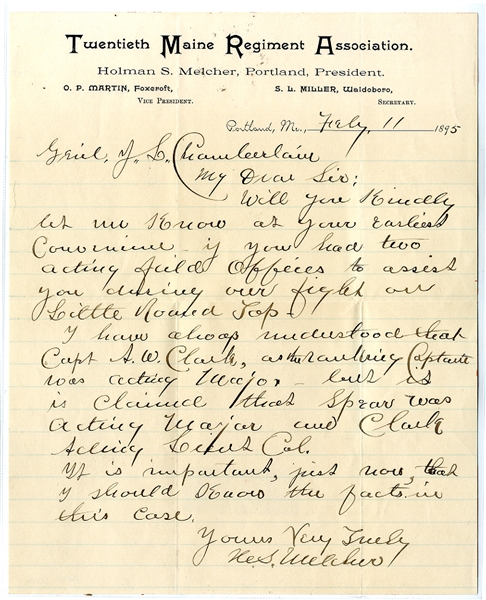 Twentieth Maine Regiment Association.
Holman S. Melcher, Portland, President.
O. P. MARTIN, Foxcroft, S. L. MILLER, Waldoboro,
VICE PRESIDENT. SECRETARY.
Portland, Me., Feby. 11 1895
Genl. J. L. Chamberlain
My Dear Sir:
Will you Kindly
let me Know at your earliest
Convenience if you had two
acting field Officers to assist
you during our fight on
Little Round Top -
I have always understood that
Capt A. W. Clark, as the ranking Captain
was acting Major - but it
is claimed that Spear was
acting Major and Clark
Acting Lieut Col.
It is important, just now, that
I should Know the facts in
this case.
Yours Very Truly
H. S. Melcher